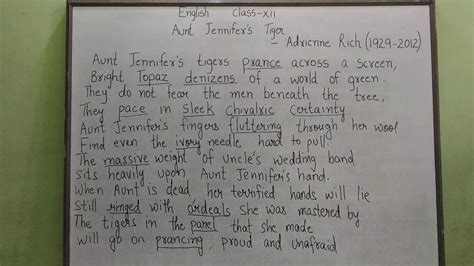 English Class-XII
Aunt Jennifer's Tiger
- Adrienne Rich (1929-2012)
Aunt Jennifer's tigers prance across a screen,
Bright Topaz denizens of a world of green.
They do not fear the men beneath the tree,
They pace in sleek chivalric certainty
Aunt Jennifer's fingers fluttering through her wool
Find even the ivory needle hard to pull
The massive weight of uncle's wedding band
sits heavily upon Aunt Jennifer's hand.
When Aunt is dead her terrified hands will lie
Still ringed with ordeals she was mastered by.
The tigers in the panel that she made
will go on prancing, proud and unafraid